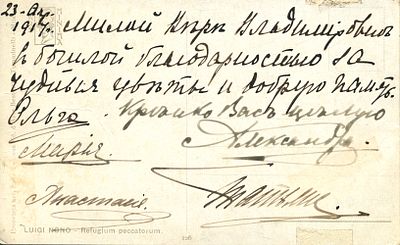 23-
1917. Милой Кирѣ Владимировнѣ
с большой благодарностью за
чудныя цвѣты и добрую память.
Ольга. Крѣпко Васъ цѣлую
Александра.
Марія.
Анастасія. Татьяна
LUIGI NONO - Refugium peccatorum.